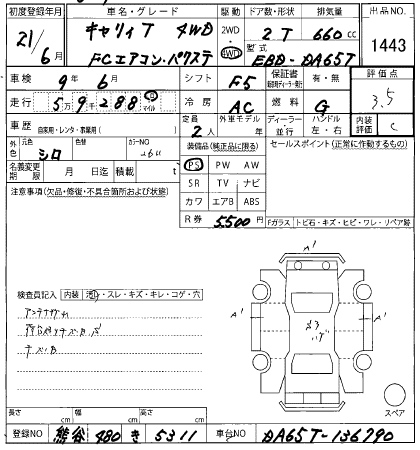 初度登録年月 車名・グレード 駆動 ドア数・形状 排気量 出品NO.
21/6月 キャリィT 4WD 2WD 4WD 2 T 660cc 1443
FC エアコン・パワステ 型式 EBD-DA65T
車検 9年 6月 シフト F5 保証書 有・無 評価点
走行 5万9千288 km マイル 冷房 AC 燃料 G 3.5
車歴 自家用・レンタ・事業用( ) 定員 2人 外車モデル 年 ディーラー 並行 ハンドル 左・右 内装評価 C
外色 元色 シロ 色替 カラーNO 26U 装備品(純正品に限る) セールスポイント(正常に作動するもの)
名義変更期限 月 日迄 積載 t PS PW AW
注意事項(欠品・修復・不具合箇所および状態) SR TV ナビ
カワ エアB ABS
R券 5,500円 Fガラス トビ石・キズ・ヒビ・ワレ・リペア跡
A'
検査員記入 内装 汚・スレ・キズ・キレ・コゲ・穴
A' A'
アンテナ
キズB
スペア
長さ cm 幅 cm 高さ cm
登録NO 熊谷 480 き 5311 車台NO DA65T-136790